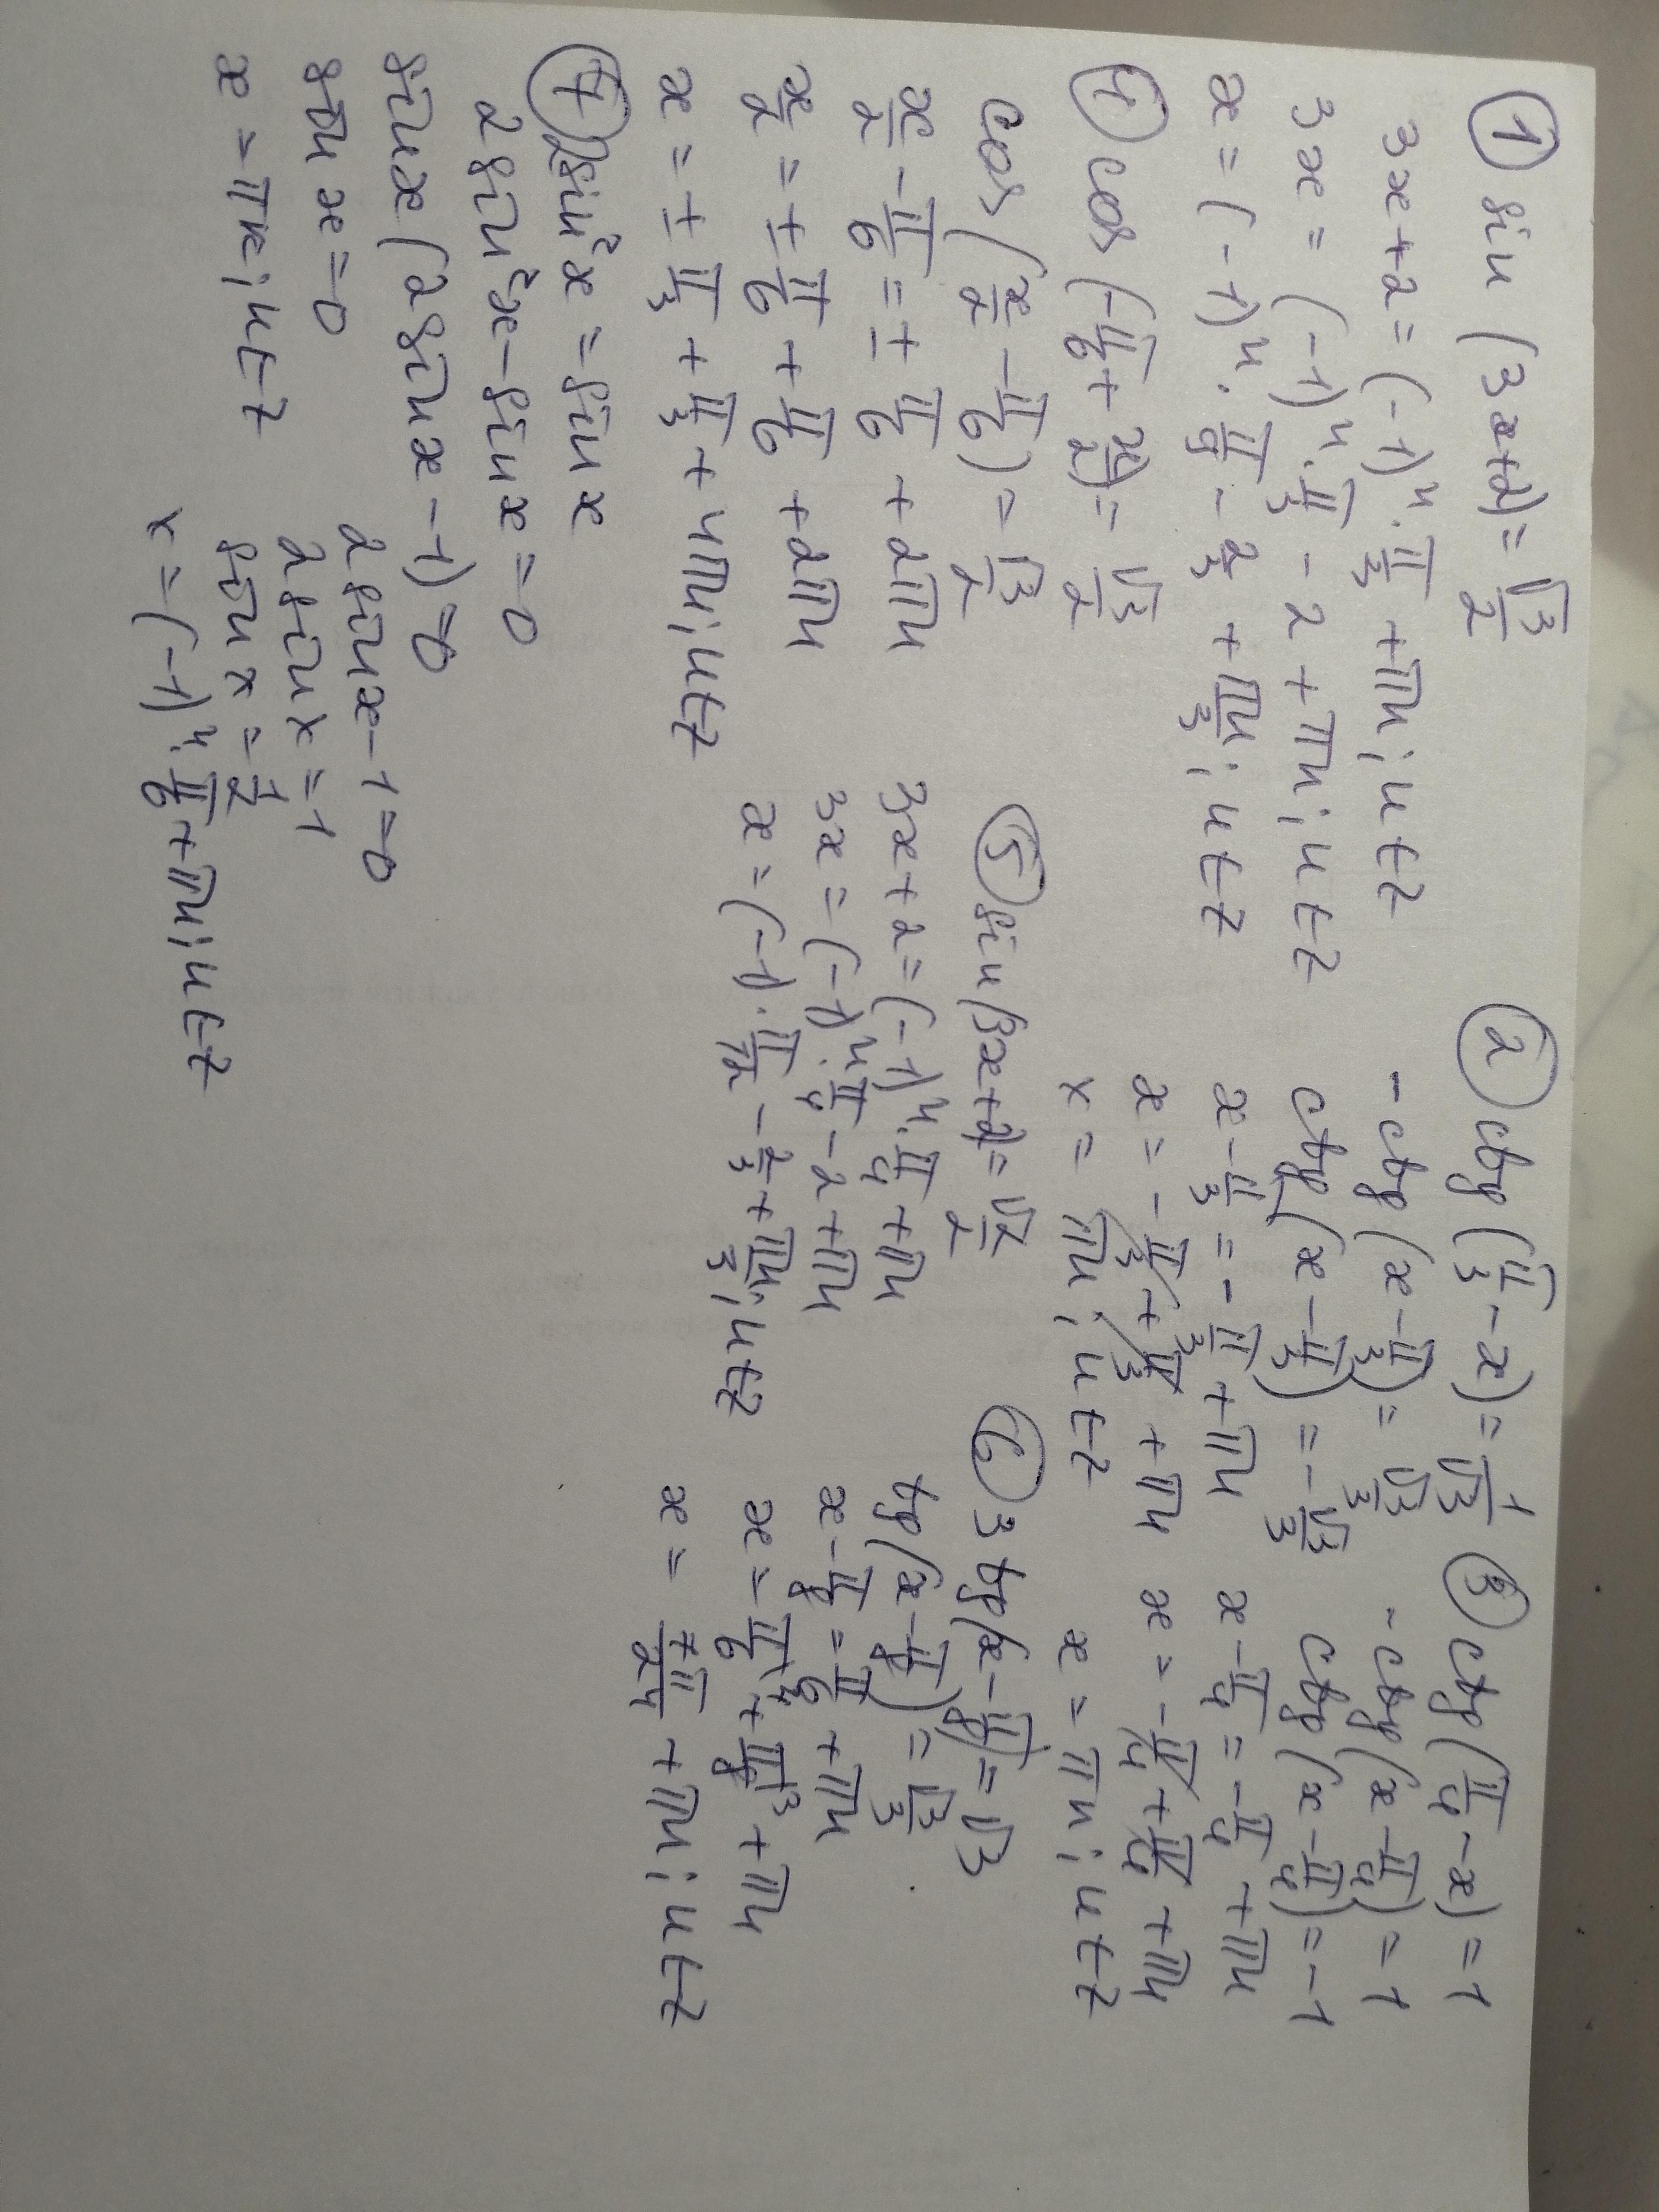 ① sin (3x+2) = √3/2
3x+2 = (-1)ⁿ · π/3 + πn; n∈z
3x = (-1)ⁿ · π/3 - 2 + πn; n∈z
x = (-1)ⁿ · π/9 - 2/3 + πn/3; n∈z
② ctg (π/3 - x) = 1/√3
- ctg (x - π/3) = √3/3
ctg (x - π/3) = - √3/3
x - π/3 = - π/3 + πn
x = - π/3 + π/3 + πn
x = πn; n∈z
③ ctg (π/4 - x) = 1
- ctg (x - π/4) = 1
ctg (x - π/4) = -1
x - π/4 = - π/4 + πn
x = - π/4 + π/4 + πn
x = πn; n∈z
④ cos (- π/6 + x/2) = √3/2
cos (x/2 - π/6) = √3/2
x/2 - π/6 = ± π/6 + 2πn
x/2 = ± π/6 + π/6 + 2πn
x = ± π/3 + π/3 + 4πn; n∈z
⑤ sin (3x+2) = √2/2
3x+2 = (-1)ⁿ · π/4 + πn
3x = (-1)ⁿ · π/4 - 2 + πn
x = (-1) · π/12 - 2/3 + πn/3; n∈z
⑥ 3 tg (x - π/8) = √3
tg (x - π/8) = √3/3
x - π/8 = π/6 + πn
x = π/6 ⁴ + π/8 ³ + πn
x = 7π/24 + πn; n∈z
⑦ 2sin²x = sin x
2 sin²x - sin x = 0
sin x (2 sin x - 1) = 0
sin x = 0
x = πk; n∈z
2 sin x - 1 = 0
2 sin x = 1
sin x = 1/2
x = (-1)ⁿ · π/6 + πn; n∈z